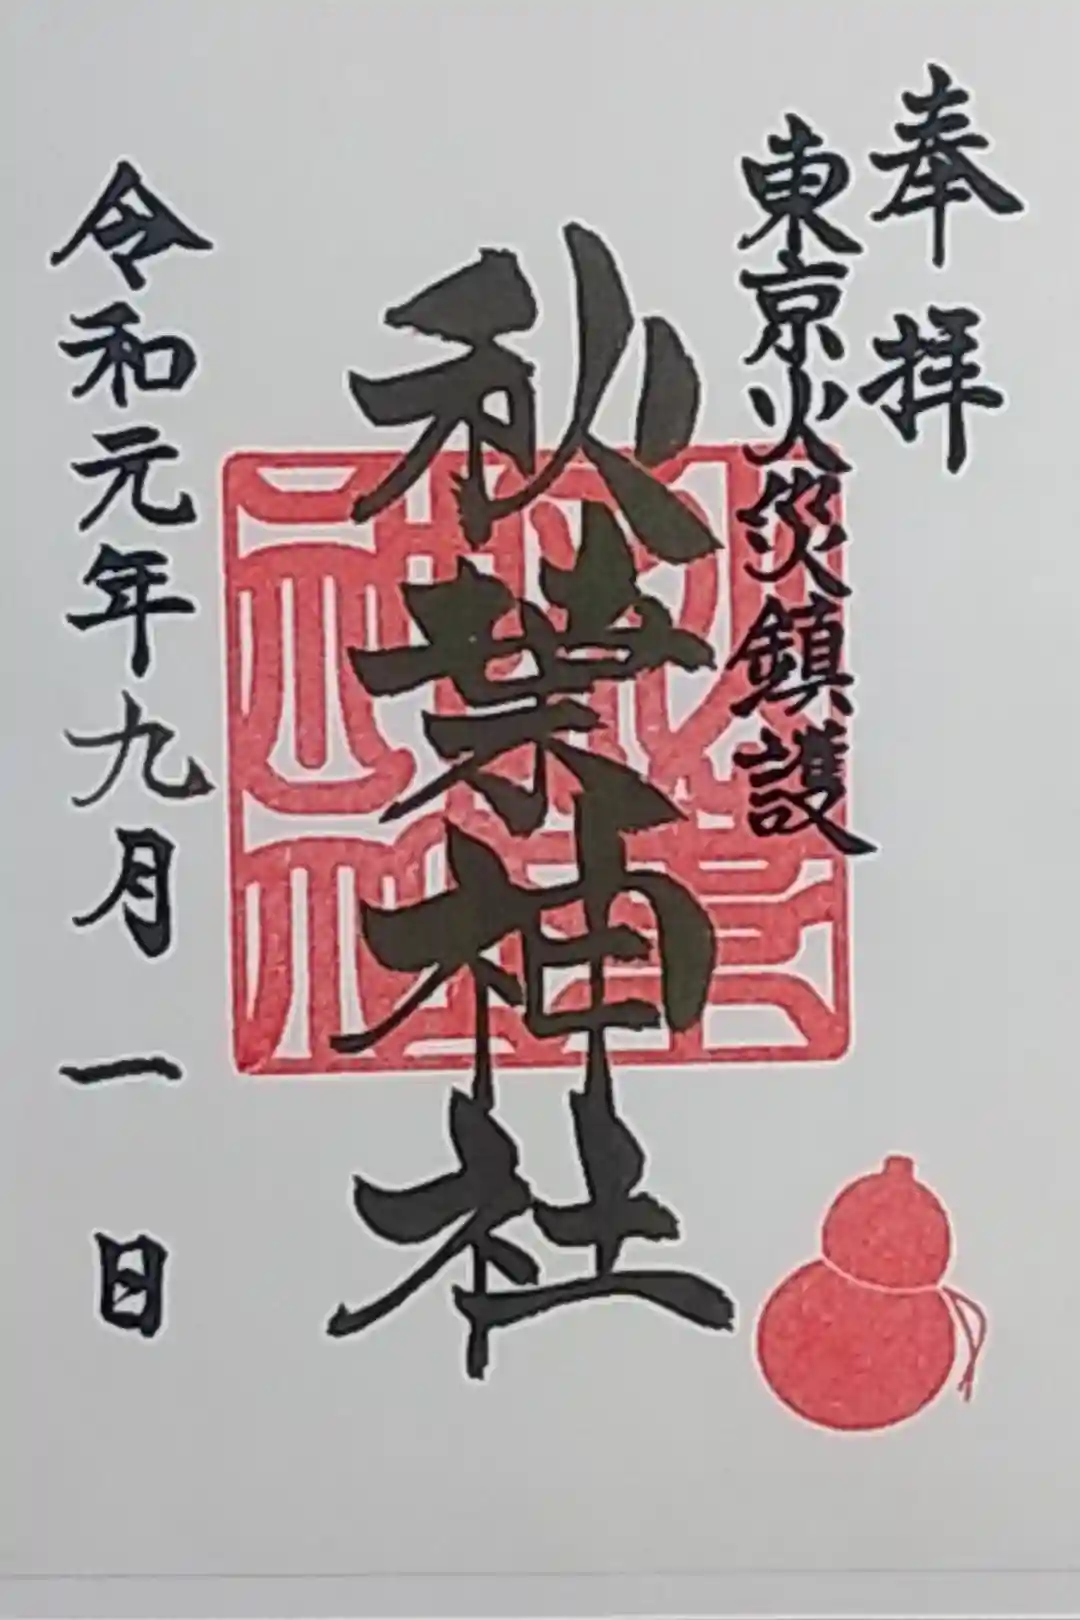 奉拝
東京火災鎮護
秋葉神社
令和元年九月一日